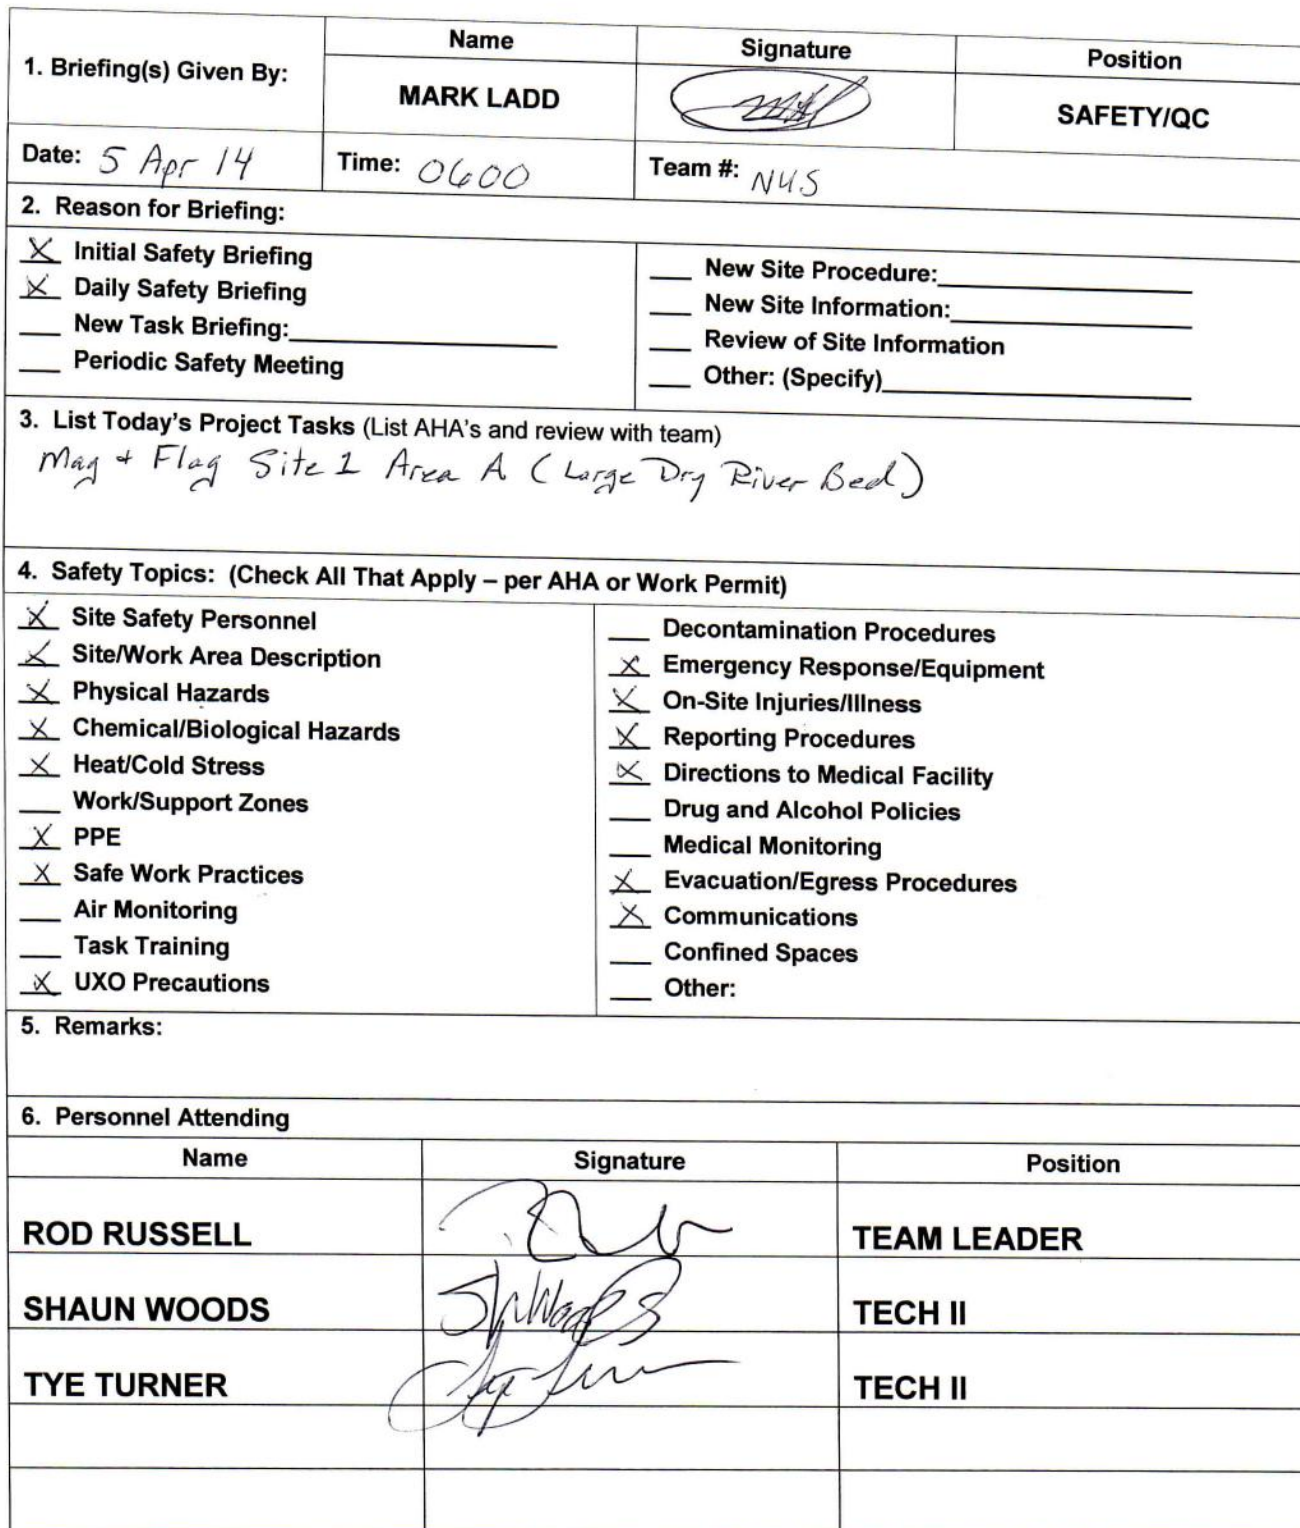 Name Signature Position
1. Briefing(s) Given By:
MARK LADD SAFETY/QC
Date: 5 Apr 14 Time: 0600 Team #: NUS
2. Reason for Briefing:
X Initial Safety Briefing
X Daily Safety Briefing
___ New Task Briefing:____________________
___ Periodic Safety Meeting
___ New Site Procedure:____________________
___ New Site Information:____________________
___ Review of Site Information
___ Other: (Specify)____________________
3. List Today's Project Tasks (List AHA's and review with team)
Mag + Flag Site 1 Area A (Large Dry River Bed)
4. Safety Topics: (Check All That Apply – per AHA or Work Permit)
X Site Safety Personnel
X Site/Work Area Description
X Physical Hazards
X Chemical/Biological Hazards
X Heat/Cold Stress
___ Work/Support Zones
X PPE
X Safe Work Practices
___ Air Monitoring
___ Task Training
X UXO Precautions
___ Decontamination Procedures
X Emergency Response/Equipment
X On-Site Injuries/Illness
X Reporting Procedures
X Directions to Medical Facility
___ Drug and Alcohol Policies
___ Medical Monitoring
X Evacuation/Egress Procedures
X Communications
___ Confined Spaces
___ Other:
5. Remarks:
6. Personnel Attending
Name Signature Position
ROD RUSSELL TEAM LEADER
SHAUN WOODS TECH II
TYE TURNER TECH II